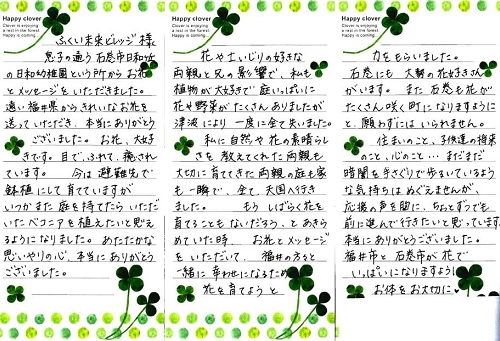 Happy clover
Clover is enjoying
a rest in the forest.
Happy is coming.
ふくい未来ビレッジ 様
息子の通う 石巻市日和が丘
の日和幼稚園という所から お花
とメッセージを いただきました。
遠い福井県から きれいなお花を
送っていただき、本当にありがとう
ございました。 お花、大好
きです。目で、ふれて、癒されて
います。 今は 避難先で
鉢植にして育てていますが
いつか また 庭を持てたら いただ
いたベコニアを植えたいと思え
るようになりました。あたたかな
思いやりの心、本当にありがとう
ございました。
Happy clover
Clover is enjoying
a rest in the forest.
Happy is coming.
花や土いじりの好きな
両親と兄の影響で、私も
植物が大好きで 庭いっぱいに
花や野菜がたくさんありましたが
津波により 一度に全て失いました。
私に自然や花の素晴らし
さを 教えてくれた両親も
大切に育ててきた両親の庭も家
も一瞬で、全て、天国へ行き
ました。 もう しばらく花を
育てることもないだろう、とあきら
めていた時、 お花とメッセージ
をいただいて、福井の方々と
一緒に 幸わせになるため
花を育てよう と
Happy clover
Clover is enjoying
a rest in the forest.
Happy is coming.
力をもらいました。
石巻にも 大勢の花好きさん
がいます。 また 石巻も花が
たくさん咲く町になりますように
と、願わずには いられません。
住まいのこと、子供達の将来
のこと、心のこと… まだまだ
暗闇を手さぐりで歩いているよう
な気持ちは ぬぐえませんが、
応援の声を胸に、ちょとずつでも
前に進んで行きたいと思っています。
本当にありがとうございました。
福井市と石巻市が花で
いっぱいになりますように
お体をお大切に